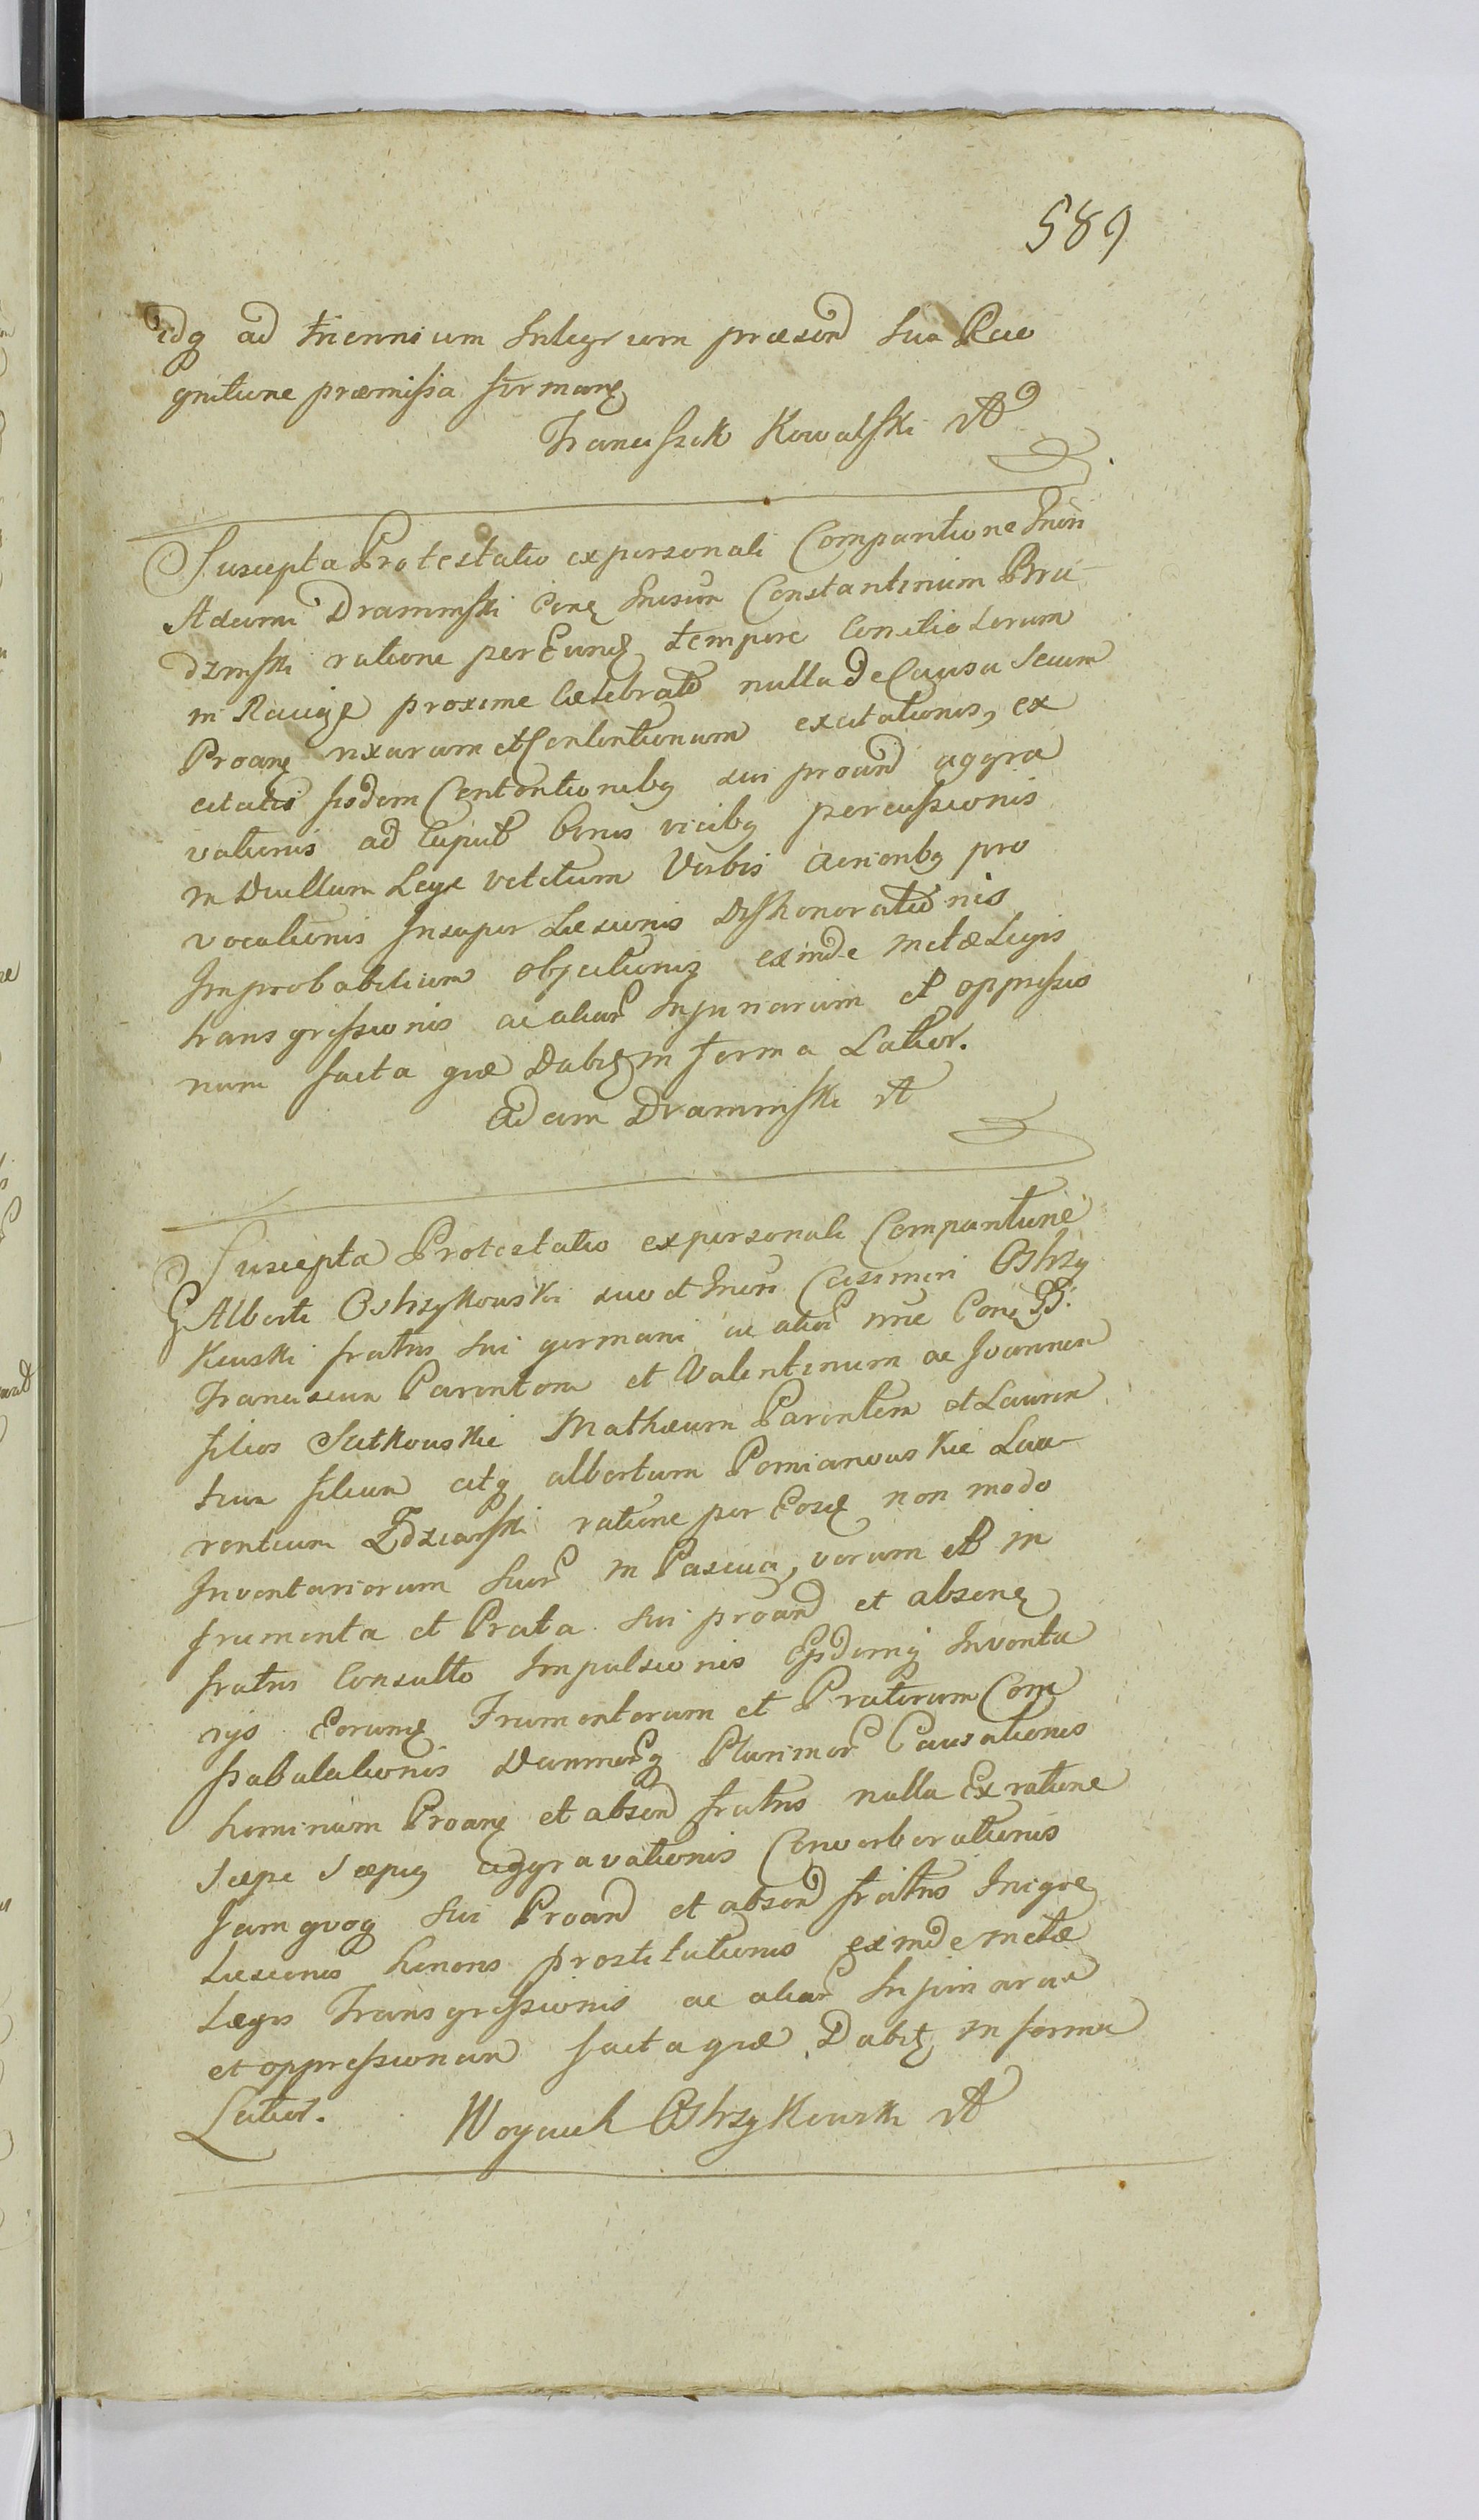 589
idq ad triennium Integrum præsend sua Reco
gnitione præmissa firmans
Franciszek Kowalski
Suscepta Protestatio ex personali Comparitione Gnsi
Adami Dramiński Con Gnosum Constantinum Bru
dziński ratione per Eund tempore Comitiolorum
in Raciąż proxime Celebrat nulla de Causa secum
Proan rixarum et Contentionum excitationis, ex
citatis iisdem Contentionibq sui proand aggra
vationis ad Caput binis vicibq percussionis
in Duellum Lege vetitum Verbis acrioribq pro
vocationis Insuper Læsionis Dishonorationis
Improbabilium objectioniq exinde metæ Legis
transgressionis ac aliar Injuriarum et oppressio
num facta quæ Dabit in forma Latior.
Adam Dramiński
Suscepta Protestatio ex personali Comparitione
G Alberti Ostrzykowski suo et Gnsi Casimiri Ostrzy
kowski fratris sui germani ac alior nne Con GG.
Franciscum Parentem et Valentinum ac Joannem
filios Sutkowskie Mathæum Parentem et Lauren
tium filium atq albertum Pomianowskie Lau
rentium Zdziarski ratione per Eosd non modo
Inventariorum suor in Pascua, verum et in
frumenta et Prata sui proand et absen
fratris Consulto Impulsionis Ejsdemq Inventa
rijs Eorund Frumentorum et Pratorum Com
pabulationis Damnorq Plurimor Causationis
hominum Proan et absend fratris nulla Ex ratione
sæpe sæpiq aggravationis Converberationis
famquoq sui Proand et absend fratris Iniquæ
Læsionis honoris prostitutionis exinde metæ
Legis Transgressionis ac aliar Injuriarum
et oppressionum facta quæ Dabit in forma
Latior. Woyciech Ostrzykowski